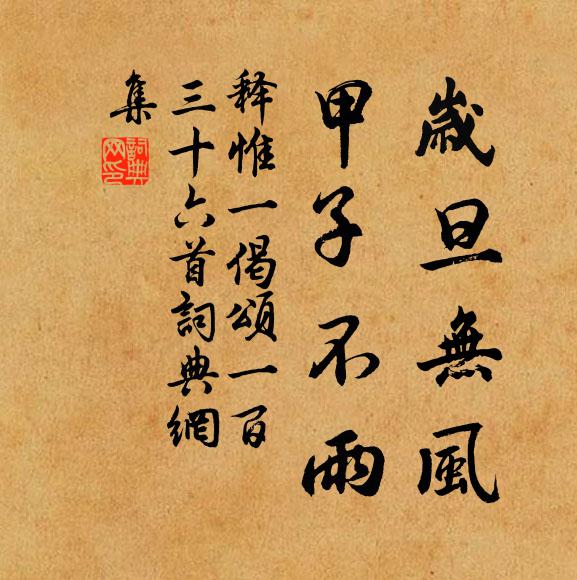 歲旦無風
甲子不雨
释惟一偈頌一百
三十六首詞典網
集
詞典
网印